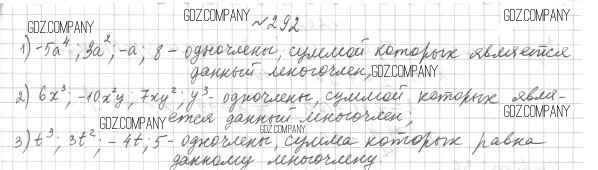 GDZ.COMPANY
GDZ.COMPANY
№292
1) -5a⁴; 3a²; -a; 8 - одночлены, суммой которых является
данный многочлен,
GDZ.COMPANY
2) 6x³; -10x²y; 7xy²; y³ - одночлены, суммой которых явля-
ется данный многочлен;
GDZ.COMPANY
GDZ.COMPANY
3) t³; 3t²; -4t; 5 - одночлены, сумма которых равна
данному многочлену